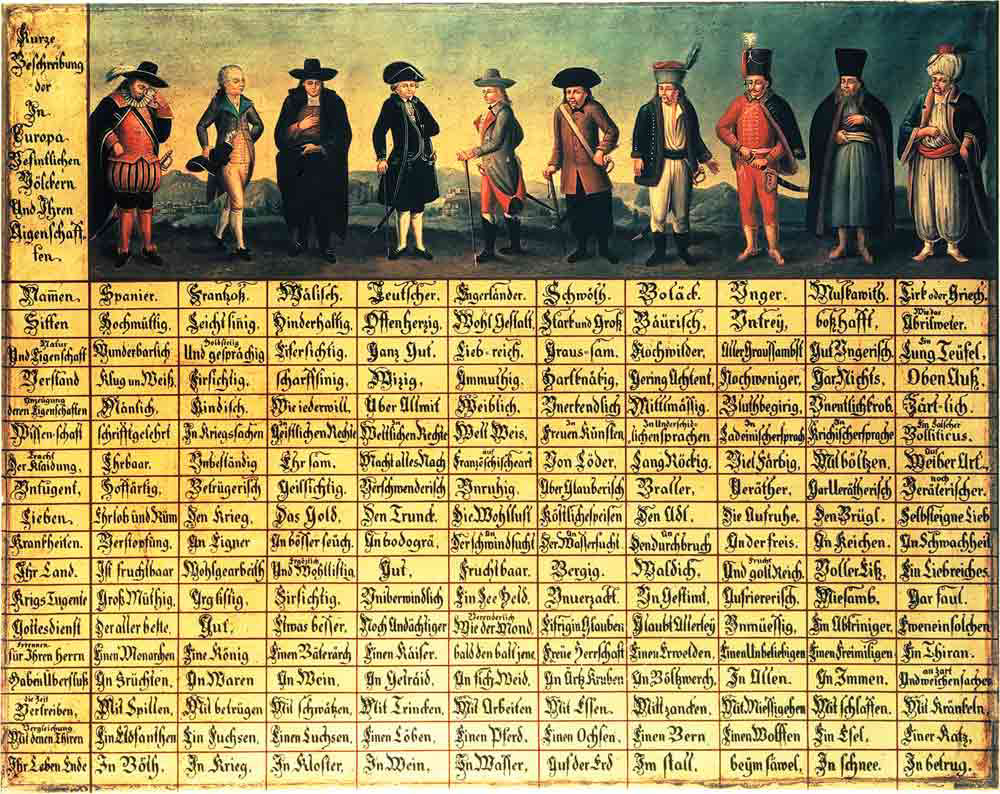 Kurze
Beschreibung
der
In
Europa
Befintlichen
Völckern
Und Ihren
Aigenschaff-
ten.
Nam̄en. Spanier. Frantzoß. Wälisch. Teutscher. Engerländer. Schwöth. Boläck. Vnger. Muskawith. Tirk oder Griech.
Sitten Hochmüttig. Leicht sinig. Hinderhaltig. Offenherzig. Wohl Gestalt. Stark und Groß Bäurisch, Vntrey, boßhafft, Wie das Abrilweter.
Natur Und Eigenschaft Wunderbarlich Holdseelig Und gespräcḣig Eifersichtig. Ganz Gut, Lieb-reich, Graus-sam, Nochwilder, Aller Graussambst Gut Vngerisch. Ein Lung Teüfel,
Verstand Klug un Weiß, Firsichtig, scharffsinig, Wizig, Ammuthig, Hartknäkig, Gering Achtent, Nochweniger, Gar Nichts, Oben Auß,
Anzeügung deren Eigenschaften Mänlich, Kindisch, Wie iederwill. Über Allmit Weiblich, Vnerkendlich Mittlmässig, Bluthbegirig, Vnentlich krob. Zärt-lich.
Wissenschaft schrifftgelehrt In Kriegssachen Geistlichen Rechte Weltlichen Rechte Welt Weis, In Freuen Künsten In Underschid-lichen sprachen In Ladeinischer sprach In Krichischer sprache Ein Falscher Bolliticus.
Tracht Der Klaidung, Ehrbaar. Vnbeständig Ehr sam. Macht alles Nach auf Französischeart Von Löder, Lang Röckig. Viel Färbig, Mit böltzen. Auf Weiber Art.
Untugent, Hoffärtig, Betrügerisch Geilsichtig. Verschwenderisch Vnruhig. Über Glauberisch Braller, Veräther, Gar Verätherisch noch Veräterischer.
Lieben, Ehrlob und Rüm Den Krieg, Das Gold, Den Trunck, Die Wohllust Köstliche speisen Den Adl, Die Aufruhe, Den Brügl, Selbsteigne Lieb
Krankheiten. Verstopfung, An Eigner An bösser seüch, An bodogrä, Der schwindsucht Der Wassersucht An Den durchbruch An der freis, An Keichen, An Schwachheit
Ihr Land, Ist fruchtbaar Wohlgearbeith Und Wohllistig Gut, Fruchtbaar, Bergig, Waldich, Frucht Und golt Reich, Voller Eiß, Ein Liebreiches
Krigs Tugente Groß Müthig, Arg listig, Firsichtig, Vniberwindlich Ein See Held, Vnuerzackt, Vn Gestimt, Aufriererisch, Miesamb, Gar faul,
Gottesdienst Der aller beste, Gut, Etwas besser, Noch Andächtiger Veränderlich Wie der Mond, Eifrig in Glauben Glaubt Allerley Vnmüessig, Ein Abtriniger, Ewen ein solchen
Erkennen für Ihren Herrn Einen Monarchen Eine König Einen Baterärch Einen Käiser, bald den balt jene Freüe Herrschaft Einen Erwelden, Einen Unbeliebigen Einen Freimiligen Ein Thiran,
Haben Überfluß In Früchten, An Waren In Wein, In Getraid, An fich Weid, In Ärtz Kruben In Böltzwerch, In Allen, In Immen, an zart Und weichen sachen
die Zeit Vertreiben, Mit Spillen, Mit betrügen Mit schwätzen, Mit Trincken, Mit Arbeiten Mit Essen, Mitt zancken, Mit Miessigehen Mit schlaffen, Mit Kränkeln,
Vergleichung Mit denen Thiren Ein Elofanthen Ein Fuchsen, Einen Luchsen, Einen Löben, Einen Pferd, Einen Ochsen, Einen Bern Einen Wolffen Ein Esel, Einer Katz,
Ihr Leben Ende In Böth, In Krieg, In Kloster, In Wein, In Wasser, Auf der Erd Im stall, beym säwel, In schnee, In betrug,